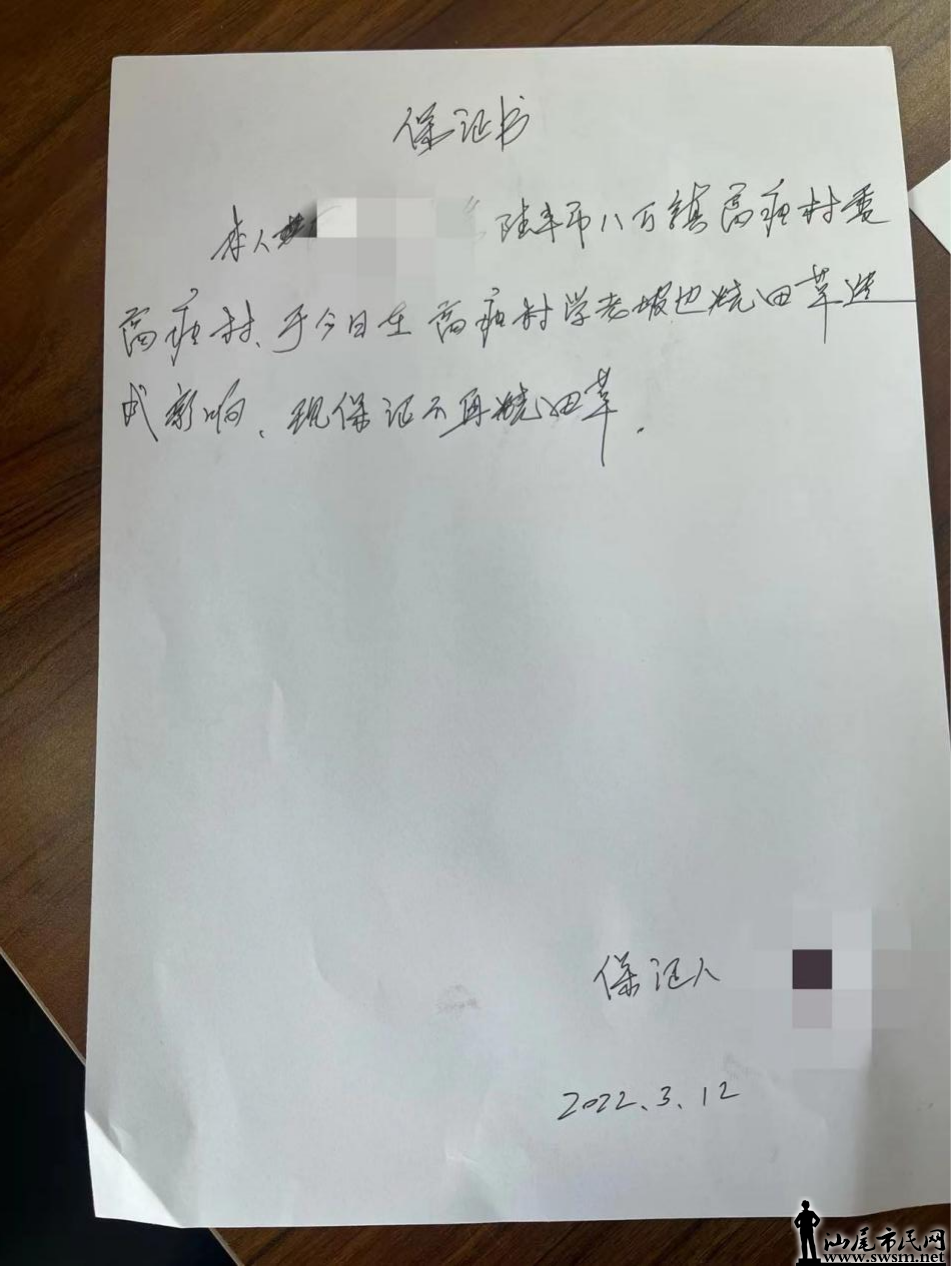 保证书
本人 陆丰市八万镇高 村委
高 村、于今日在高 村学老坡边烧田草造
成影响、现保证不再烧田草.
保证人
2022.3.12
汕尾市民网
www.swsm.net